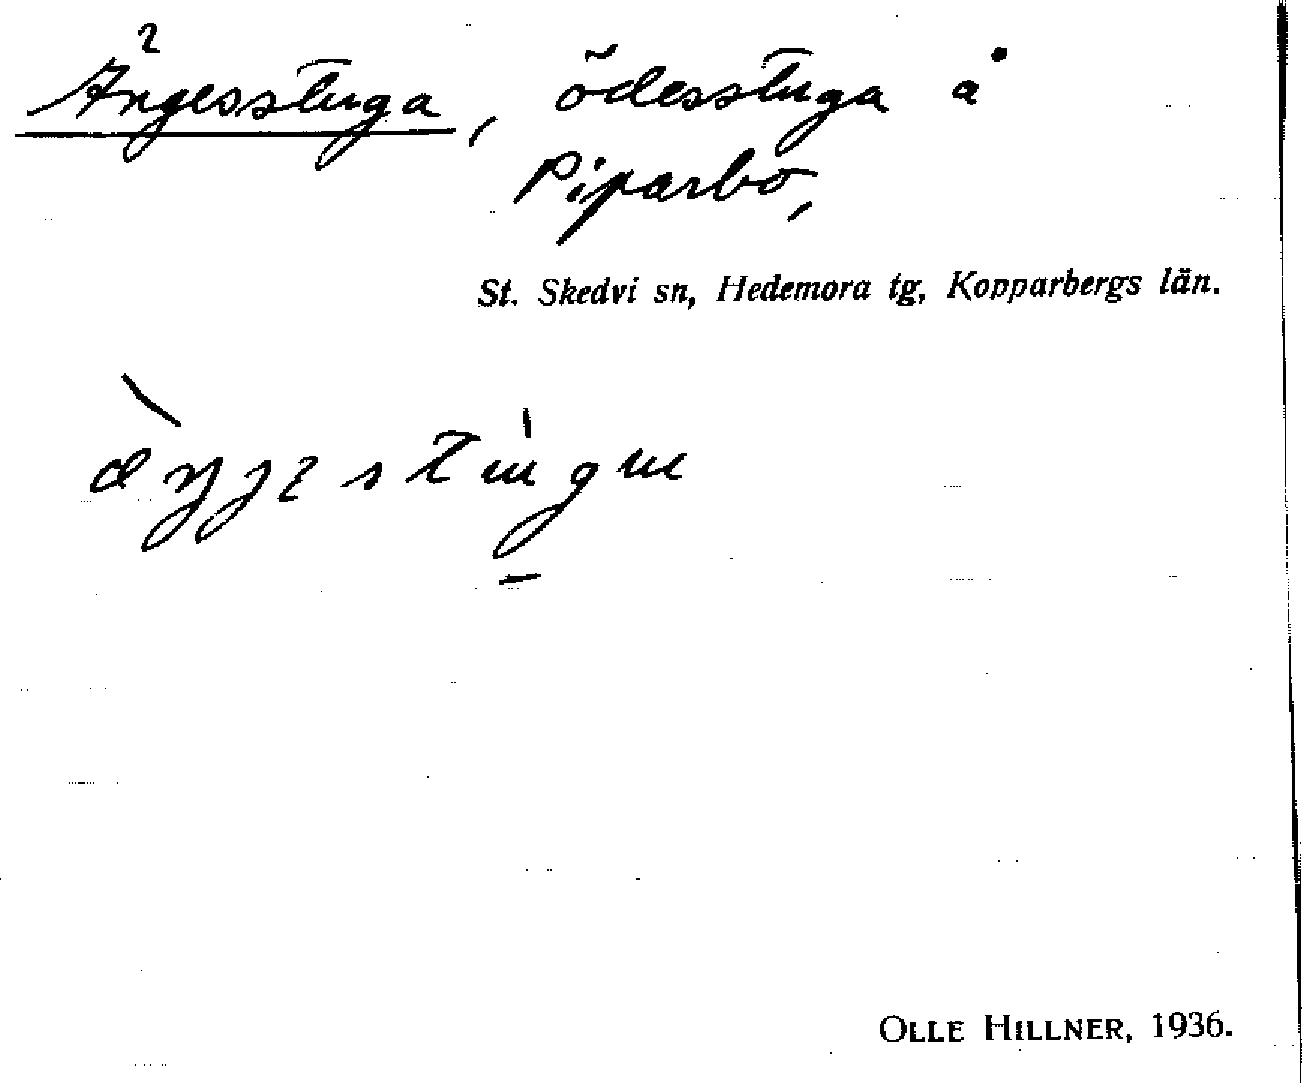 Ängesstuga, ödesstuga å
Piparbo,
St. Skedvi sn, Hedemora tg, Kopparbergs län.
OLLE HILLNER, 1936.